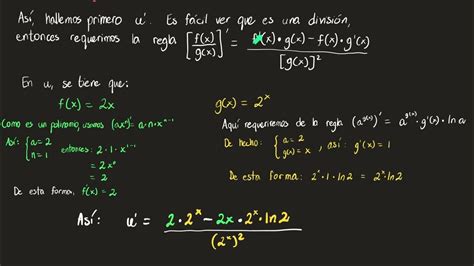 Así, hallemos primero u'. Es fácil ver que es una división,
entonces requerimos la regla [f(x)/g(x)]' = f'(x)·g(x) - f(x)·g'(x) / [g(x)]²
En u, se tiene que:
f(x) = 2x
g(x) = 2ˣ
Como es un polinomio, usamos (axⁿ)' = a·n·xⁿ⁻¹
Así: { a = 2 n = 1 entonces: 2·1·x¹⁻¹
= 2x⁰
= 2
De esta forma, f'(x) = 2
Aquí requeriremos de la regla (a^g(x))' = a^g(x)·g'(x)·ln a
De hecho: { a = 2 g(x) = x , así: g'(x) = 1
De esta forma: 2ˣ·1·ln 2 = 2ˣ·ln 2
Así: u' = 2·2ˣ - 2x·2ˣ·ln 2 / (2ˣ)²